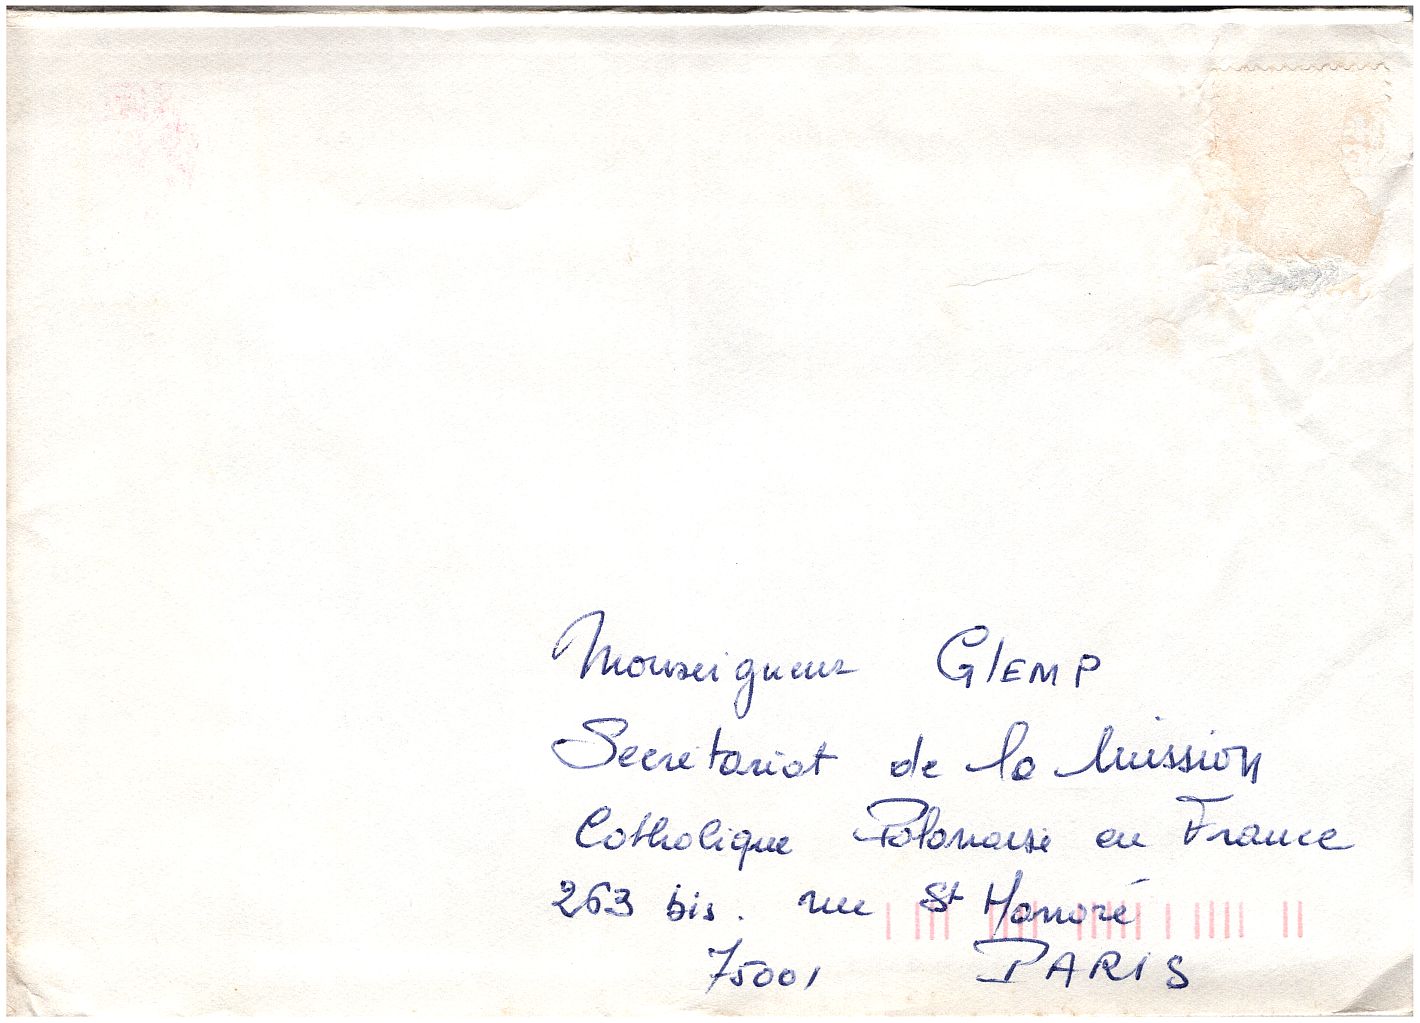 Monseigneur GLEMP
Secretariat de la Mission
Catholique Polonaise en France
263 bis. rue St Honoré
75001 PARIS